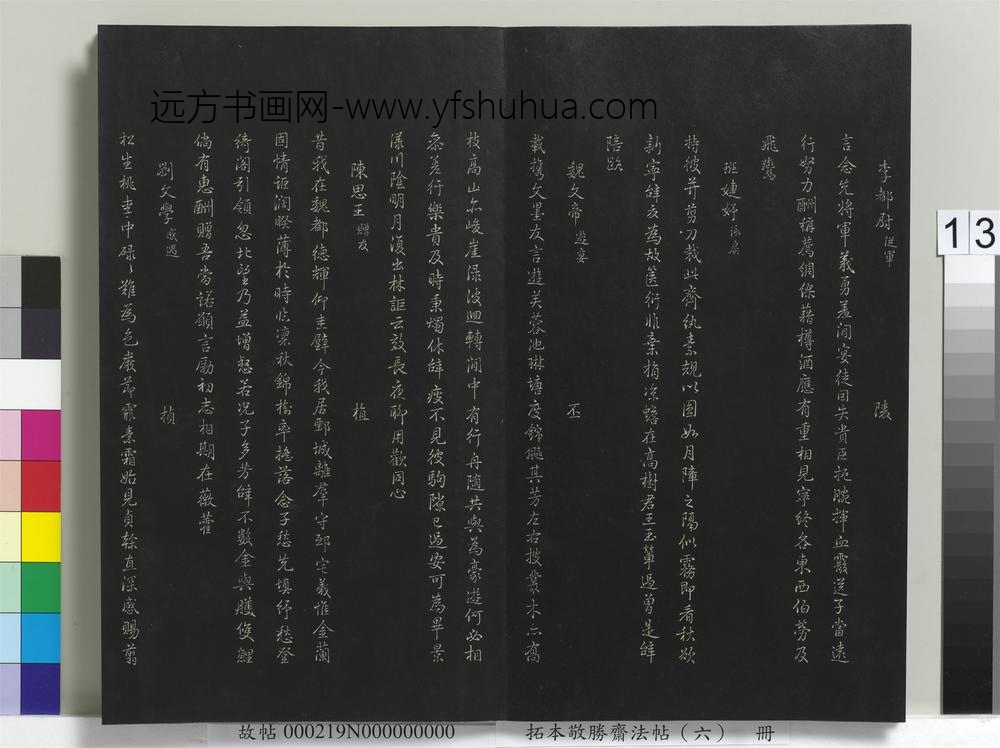 远方书画网-www.yfshuhua.com
李都尉 從軍 陵
言念先將軍義勇羞閒宴徒因失貴臣扼腕揮血霰送子當遠
行努力酬稱薦綢繆藉樽酒應有重相見寧終各東西伯勞及
飛鷰
班婕妤 詠扇
持彼并剪刀裁此齊紈素規以圓如月障之隔似霧即看秋欲
新寧辭衣為故篋衍非棄捐涼蟾在高樹君王玉輦過曾是辭
陪
魏文帝 遊宴 丕
載攜文墨友言遊芙蓉池琳塘度錦 其芳左右披叢木六喬
枝高山尔峻崖深波迴轉間中有行舟隨共與為豪遊何必相
參差行樂貴及時秉燭休辭疲不見彼駒隙已過安可為畢景
漾川陰明月復出林詎云效長夜聊用歡同心
陳思王 贈友 植
昔我在魏都德輝仰圭璧今我居鄄城離羣守邸宅義惟金蘭
固情詎濶暌薄於時 凜秋錦 卒 落念子愁先填紓愁登
綺閣引領忽北望乃益增怒若况子多芳辭不數金與雘雙鯉
倘有惠酬贈吾當諾願言勵初志相期在薇藿
劉文學 感遇 楨
松生桃李中碌碌難為色嚴節霣素霜始見貞榦直深感賜翦
13
故帖 000219N000000000
拓本敬勝齋法帖（六） 冊